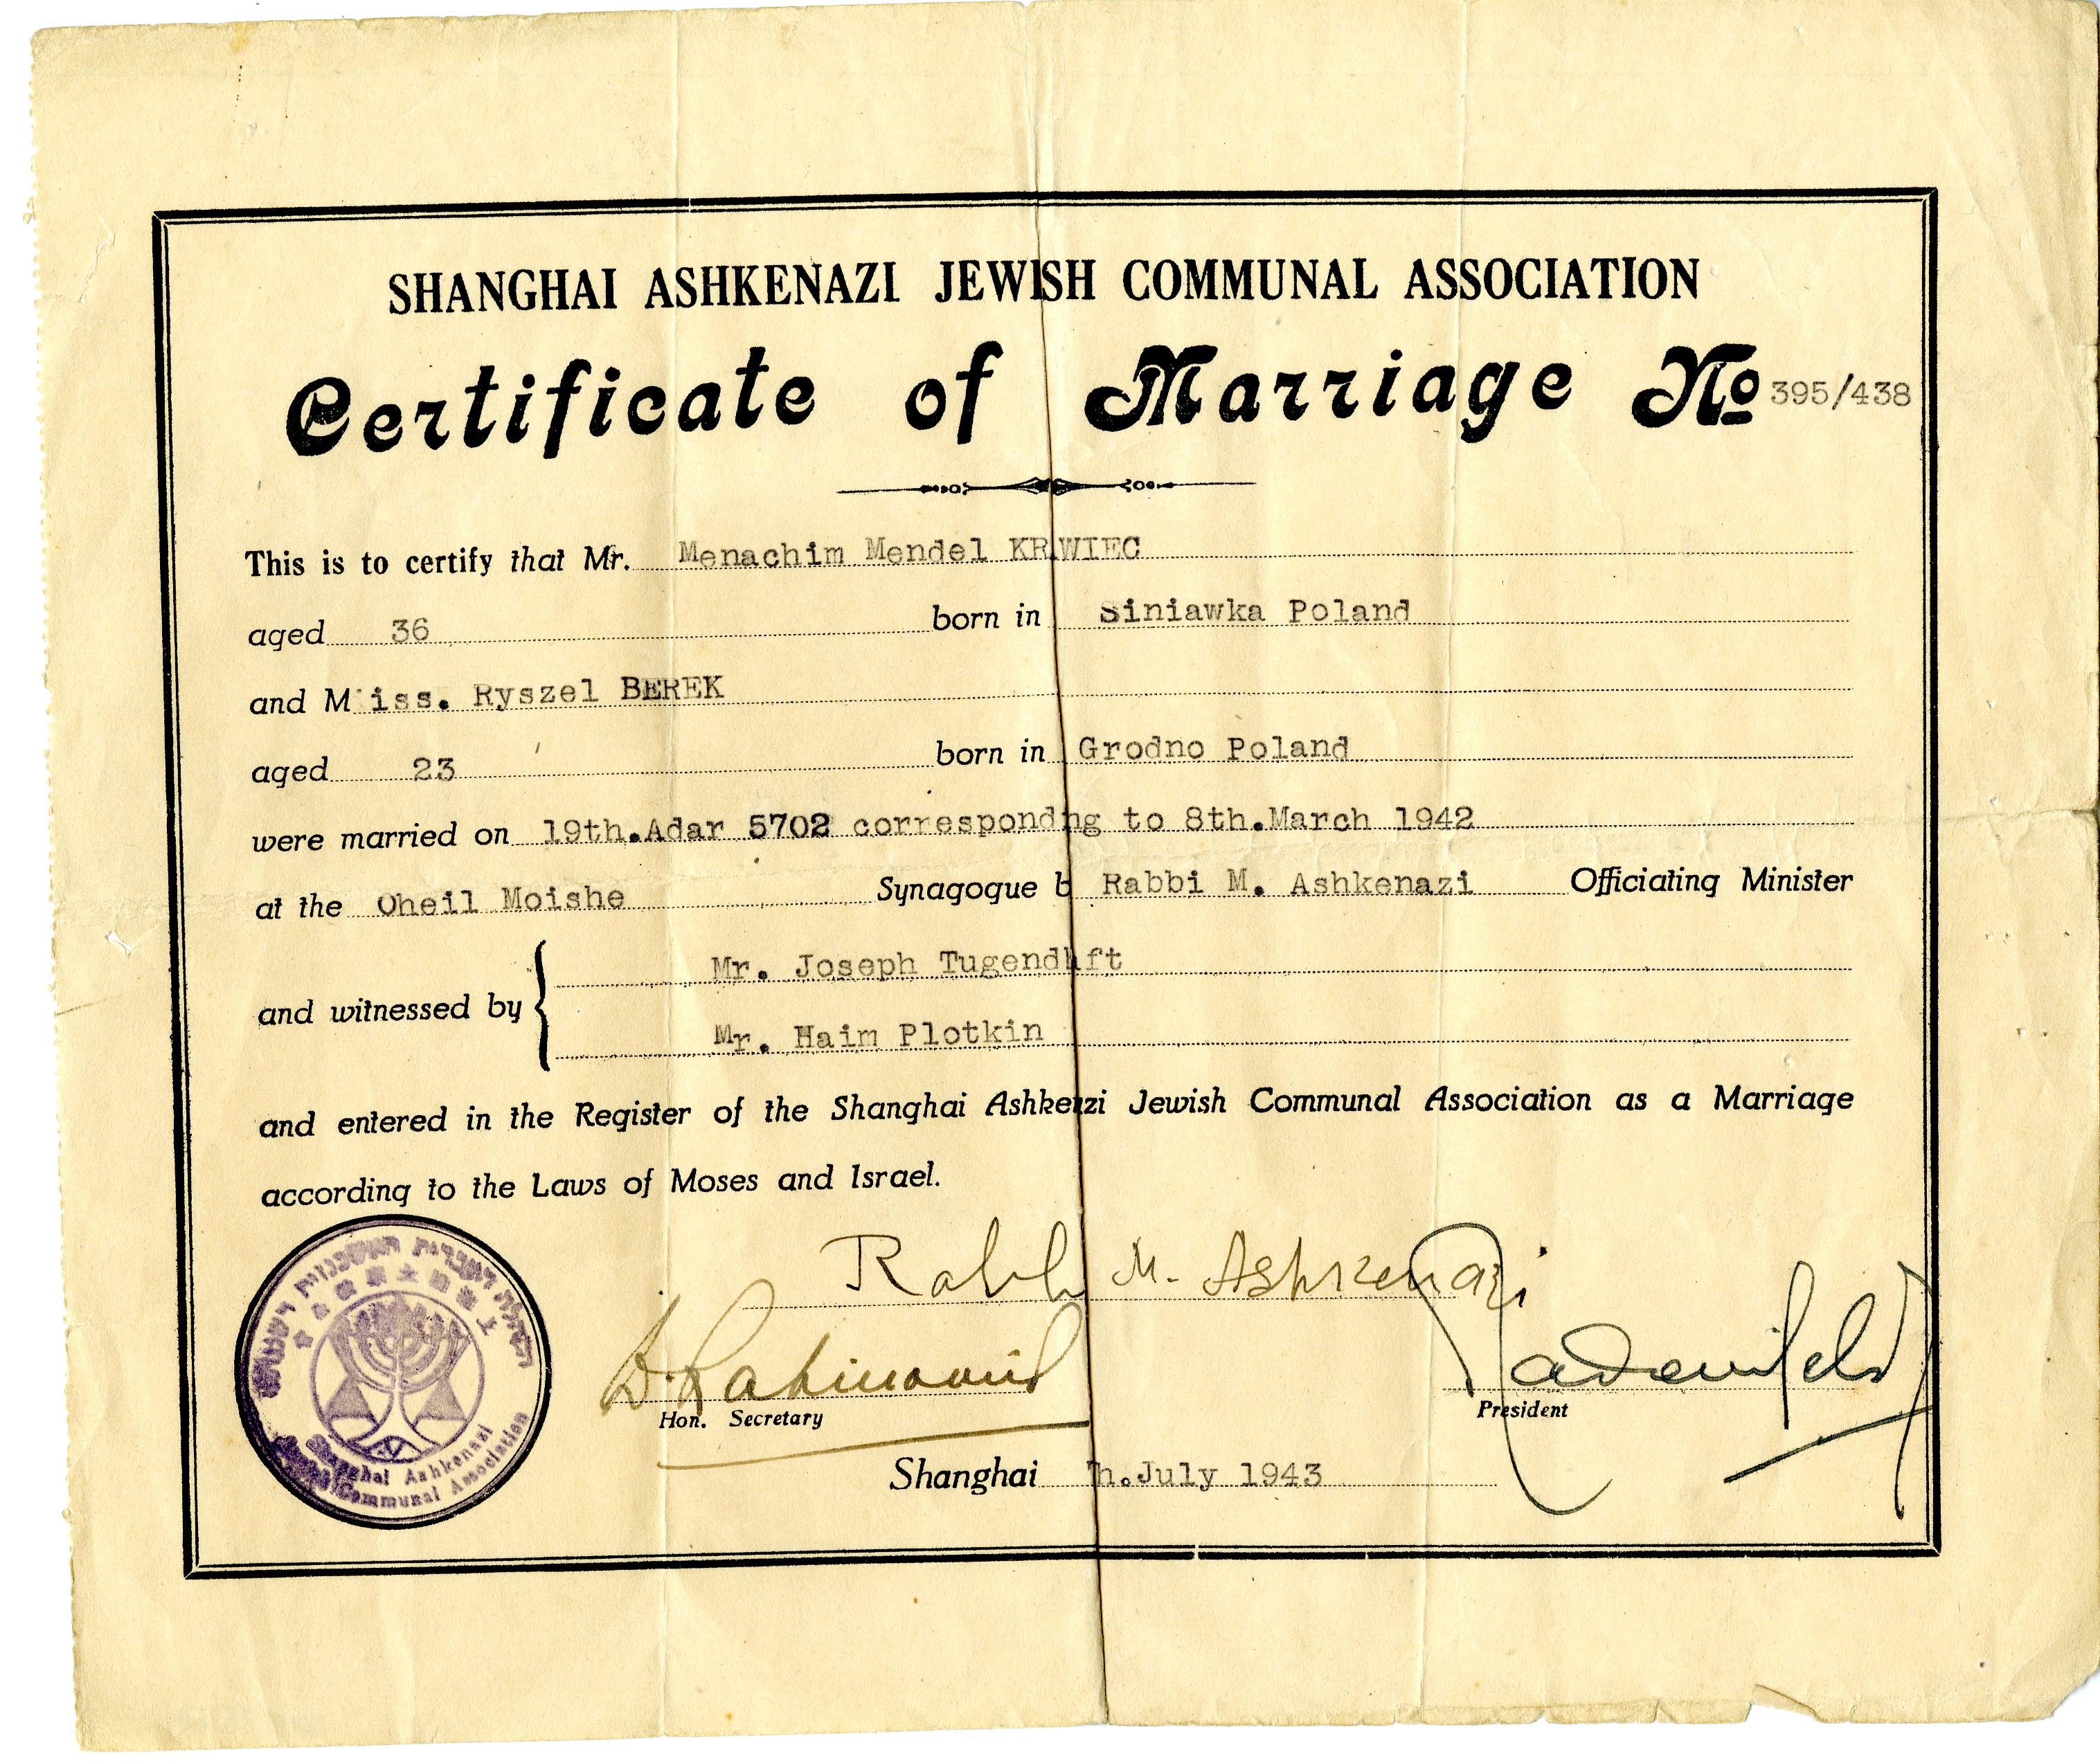 SHANGHAI ASHKENAZI JEWISH COMMUNAL ASSOCIATION
Certificate of Marriage No 395/438
This is to certify that Mr. Menachim Mendel KRWIEC
aged 36 born in Siniawka Poland
and Miss. Ryszel BEREK
aged 23 born in Grodno Poland
were married on 19th.Adar 5702 correspondng to 8th.March 1942
at the Oheil Moishe Synagogue b Rabbi M. Ashkenazi Officiating Minister
and witnessed by { Mr. Joseph Tugendhft
Mr. Haim Plotkin
and entered in the Register of the Shanghai Ashkezi Jewish Communal Association as a Marriage
according to the Laws of Moses and Israel.
Rabbi M. Ashkenazi
Hon. Secretary
President
Shanghai h.July 1943
Shanghai Ashkenazi
Communal Association